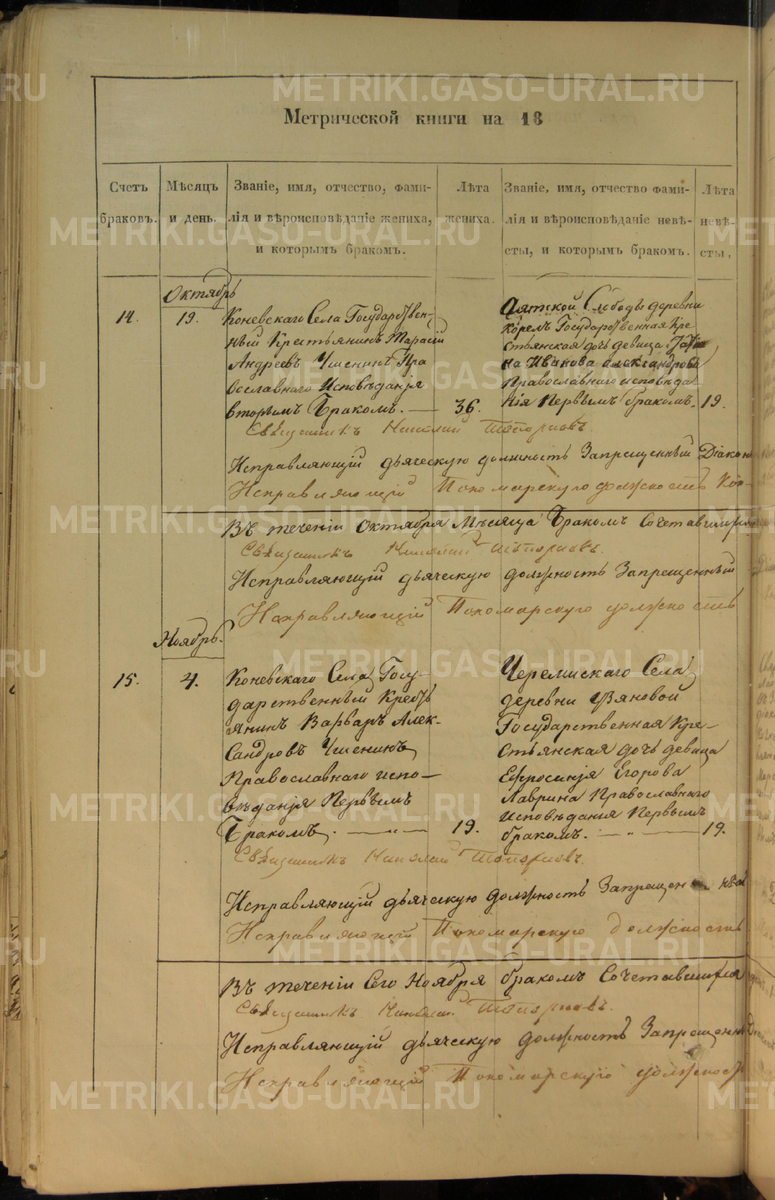 Метрической книги на 18
Счетъ браковъ.
Мѣсяцъ и день.
Званіе, имя, отчество, фами-
лія и вѣроисповѣданіе жениха,
и которымъ бракомъ.
Лѣта жениха.
Званіе, имя, отчество фами-
лія и вѣроисповѣданіе невѣ-
сты, и которымъ бракомъ.
Лѣта невѣ-
сты,
Октябрь
14.
19.
Коневскаго Села Государствен-
ный Крестьянинъ Тарасій
Андреевъ Ушенинъ Пра
вославнаго Исповѣданія
вторымъ Бракомъ.
36.
Аятской Слободы деревни
Корелъ Государственная Кре
стьянская дочь девица
на Иванова Александрова
Православнаго исповѣда
нія Первымъ бракомъ.
19.
Священникъ Николай Топорковъ.
Исправляющій дьяческую должность Запрещенный Діаконъ
Исправляющій Пономарскую должность
Въ теченіи Октября Мѣсяца Бракомъ Сочетавшихся
Священникъ Николай Топорковъ.
Исправляющій дьяческую должность Запрещенный
Исправляющій Пономарскую должность
Ноябрь.
15.
4.
Коневскаго Села Госу-
дарственный Кресть
янинъ Варваръ Алек-
сандровъ Ушенинъ
Православнаго испо-
вѣданія Первымъ
Бракомъ.
19.
Черемисскаго Села
деревни
Государственная Кре-
стьянская дочь девица
Ефросинія Егорова
Лаврина Православнаго
исповѣданія Первымъ
бракомъ.
19.
Священникъ Николай Топорковъ.
Исправляющій дьяческую должность
Исправляющій Пономарскую должность
Въ теченіи Сего Ноября бракомъ Сочетавшихся
Священникъ Николай Топорковъ.
Исправляющій дьяческую должность Запрещенный
Исправляющій Пономарскую должность
METRIKI.GASO-URAL.RU